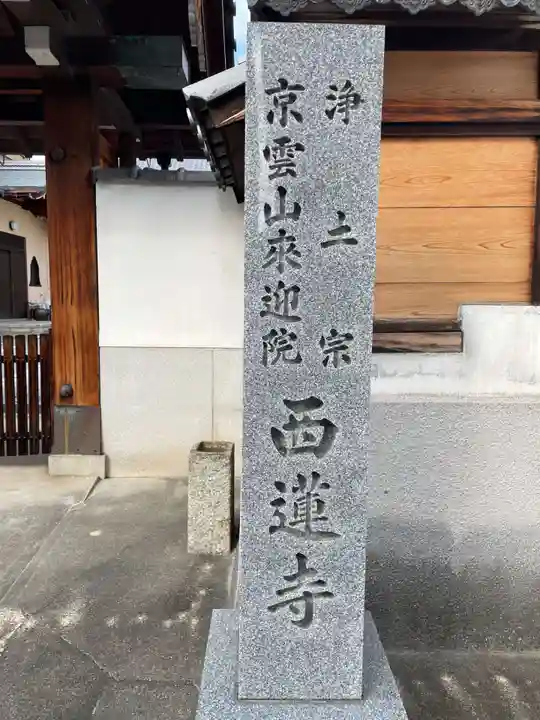 浄土宗
京雲山來迎院
西蓮寺